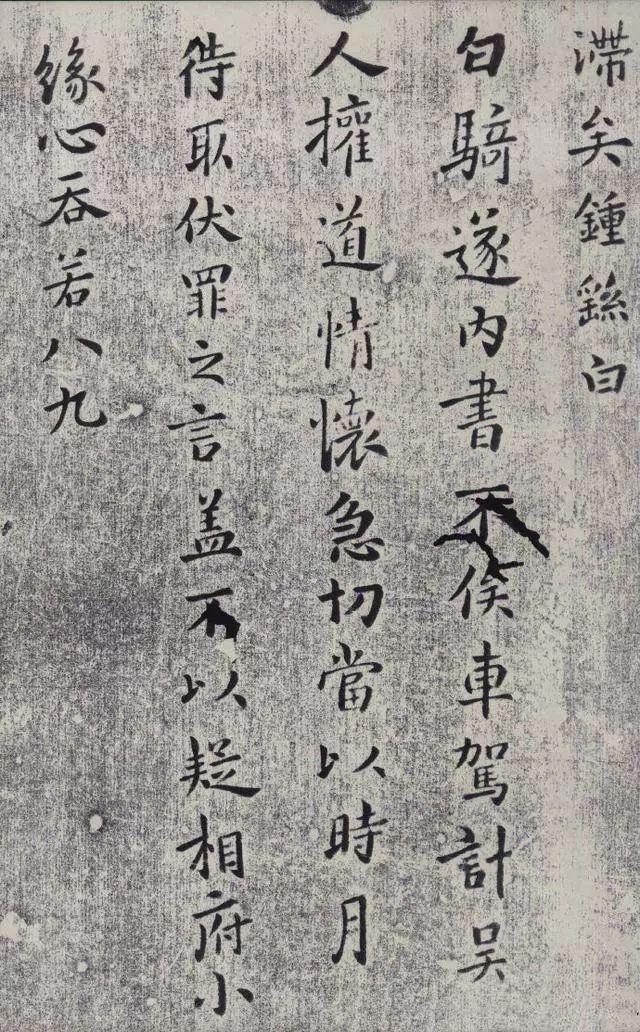 滯矣鍾繇白
白騎遂內書不俟車駕計吳
人權道情懷急切當以時月
待取伏罪之言盖不以疑相府小
緣心吞若八九